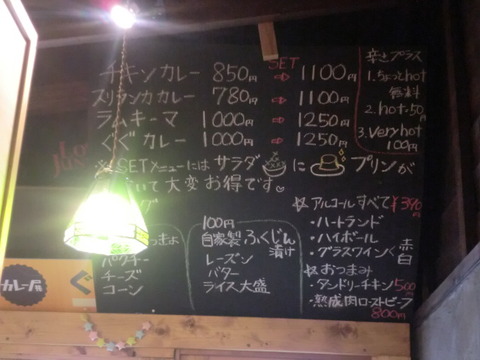 SET
チキンカレー 850円 ⇨ 1100円
スリランカカレー 780円 ⇨ 1100円
ラムキーマ 1000円 ⇨ 1250円
くぐカレー 1000円 ⇨ 1250円
※SETメニューにはサラダに プリンが
いて大変お得です
辛さプラス
1.ちょっとhot
無料
2.hot・50円
3.Very hot
100円
グ
らっきょ
パクチー
チーズ
コーン
100円
自家製ふくじん漬け
レーズン
バター
ライス大盛
アルコールすべて¥390
・ハートランド
・ハイボール
・グラスワイン 赤 白
おつまみ
・タンドリーチキン500円
・熟成肉ローストビーフ
800円
カレー屋
ぐ